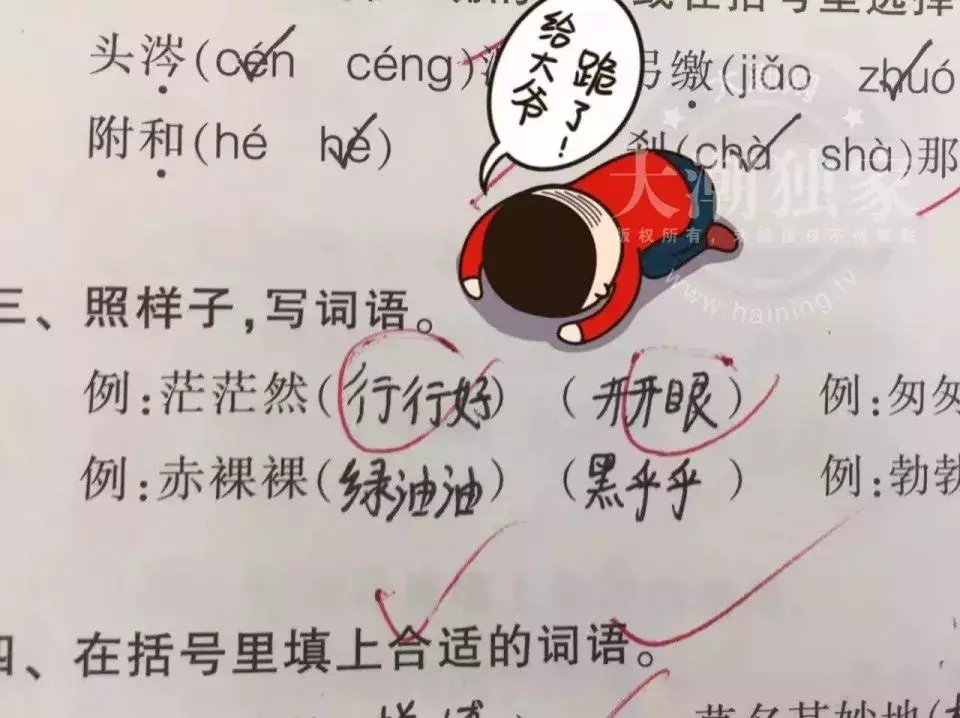 在括号里选择
头涔(cén céng)
吊缴(jiǎo zhuó
给大爷
跪了！
附和(hé hè)
刹(chà shà)那
大潮独家
版权所有，未经授权不得转载
www.haining.tv
三、照样子,写词语。
例:茫茫然(行行好) (开开眼) 例:匆匆
例:赤裸裸(绿油油) (黑乎乎) 例:勃勃
四、在括号里填上合适的词语。
莫名其妙地(